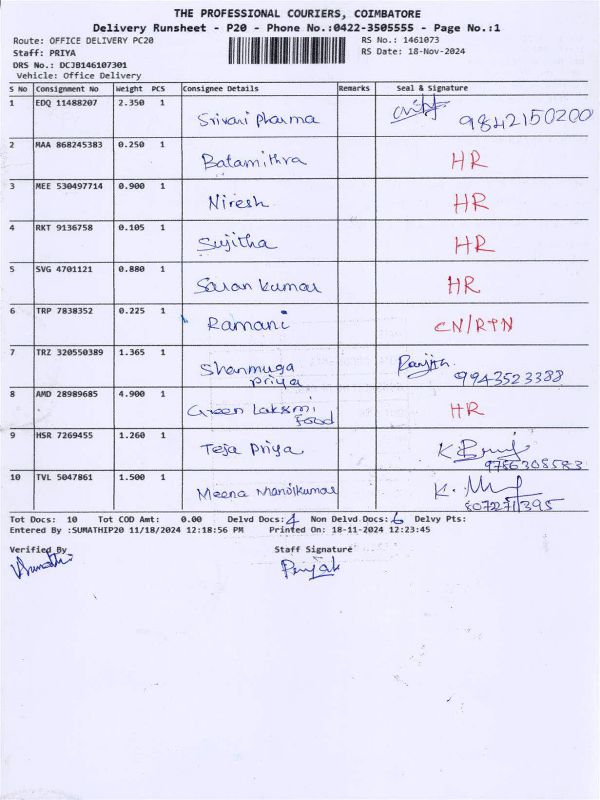 THE PROFESSIONAL COURIERS, COIMBATORE
Delivery Runsheet - P20 - Phone No.:0422-3505555 - Page No.:1
Route: OFFICE DELIVERY PC20 RS No.: 1461073
Staff: PRIYA RS Date: 18-Nov-2024
DRS No.: DCJB146107301
Vehicle: Office Delivery
S No Consignment No Weight PCS Consignee Details Remarks Seal & Signature
1 EDQ 11488207 2.350 1 Srivari Pharma 9842150200
2 MAA 868245383 0.250 1 Batamithra HR
3 MEE 530497714 0.900 1 Niresh HR
4 RKT 9136758 0.105 1 Sujitha HR
5 SVG 4701121 0.880 1 Saran kumar HR
6 TRP 7838352 0.225 1 Ramani CN/RTN
7 TRZ 320550389 1.365 1 Shanmuga Ranjith
Priya 9943523388
8 AMD 28989685 4.900 1 Green Lakxmi HR
Food
9 HSR 7269455 1.260 1 Teja Priya
9786308583
10 TVL 5047861 1.500 1 Meena Manojkumar
8072271395
Tot Docs: 10 Tot COD Amt: 0.00 Delvd Docs: 4 Non Delvd Docs: 6 Delvy Pts:
Entered By :SUMATHIP20 11/18/2024 12:18:56 PM Printed On: 18-11-2024 12:23:45
Verified By Staff Signature